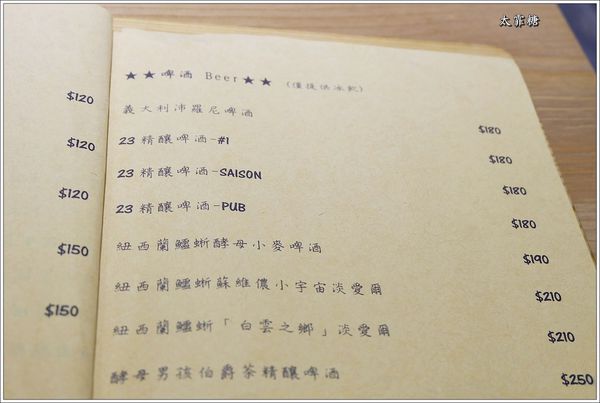 太霏糖
★★啤酒 Beer★★ (僅提供冰飲)
$120
義大利沛羅尼啤酒 $180
$120
23 精釀啤酒-#1 $180
23 精釀啤酒-SAISON $180
$120
23 精釀啤酒-PUB $180
$150
紐西蘭鱷蜥酵母小麥啤酒 $190
紐西蘭鱷蜥蘇維儂小宇宙淡愛爾 $210
$150
紐西蘭鱷蜥「白雲之鄉」淡愛爾 $210
酵母男孩伯爵茶精釀啤酒 $250